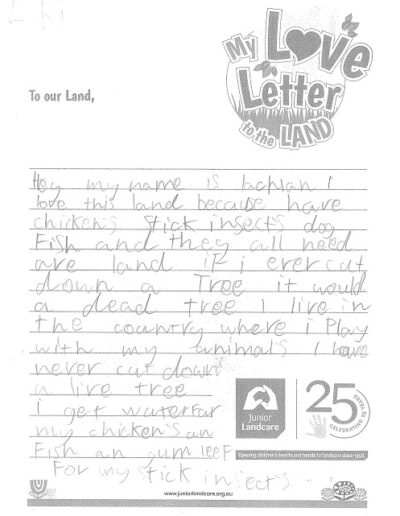 My Love
Letter
to the LAND
To our Land,
Hey my name is lachlan I
love this land because have
chicken's stick insect's dog
Fish and they all need
are land if i ever cut
down a Tree it would
a dead tree I live in
the country where i Play
with my animal's I have
never cut down
a live tree
i get water for
my chicken's an
Fish an gum leeF
For my stick insect's
Junior
Landcare
25 YEARS
CELEBRATING
Opening children's hearts and hands to Landcare since 1998
www.juniorlandcare.org.au